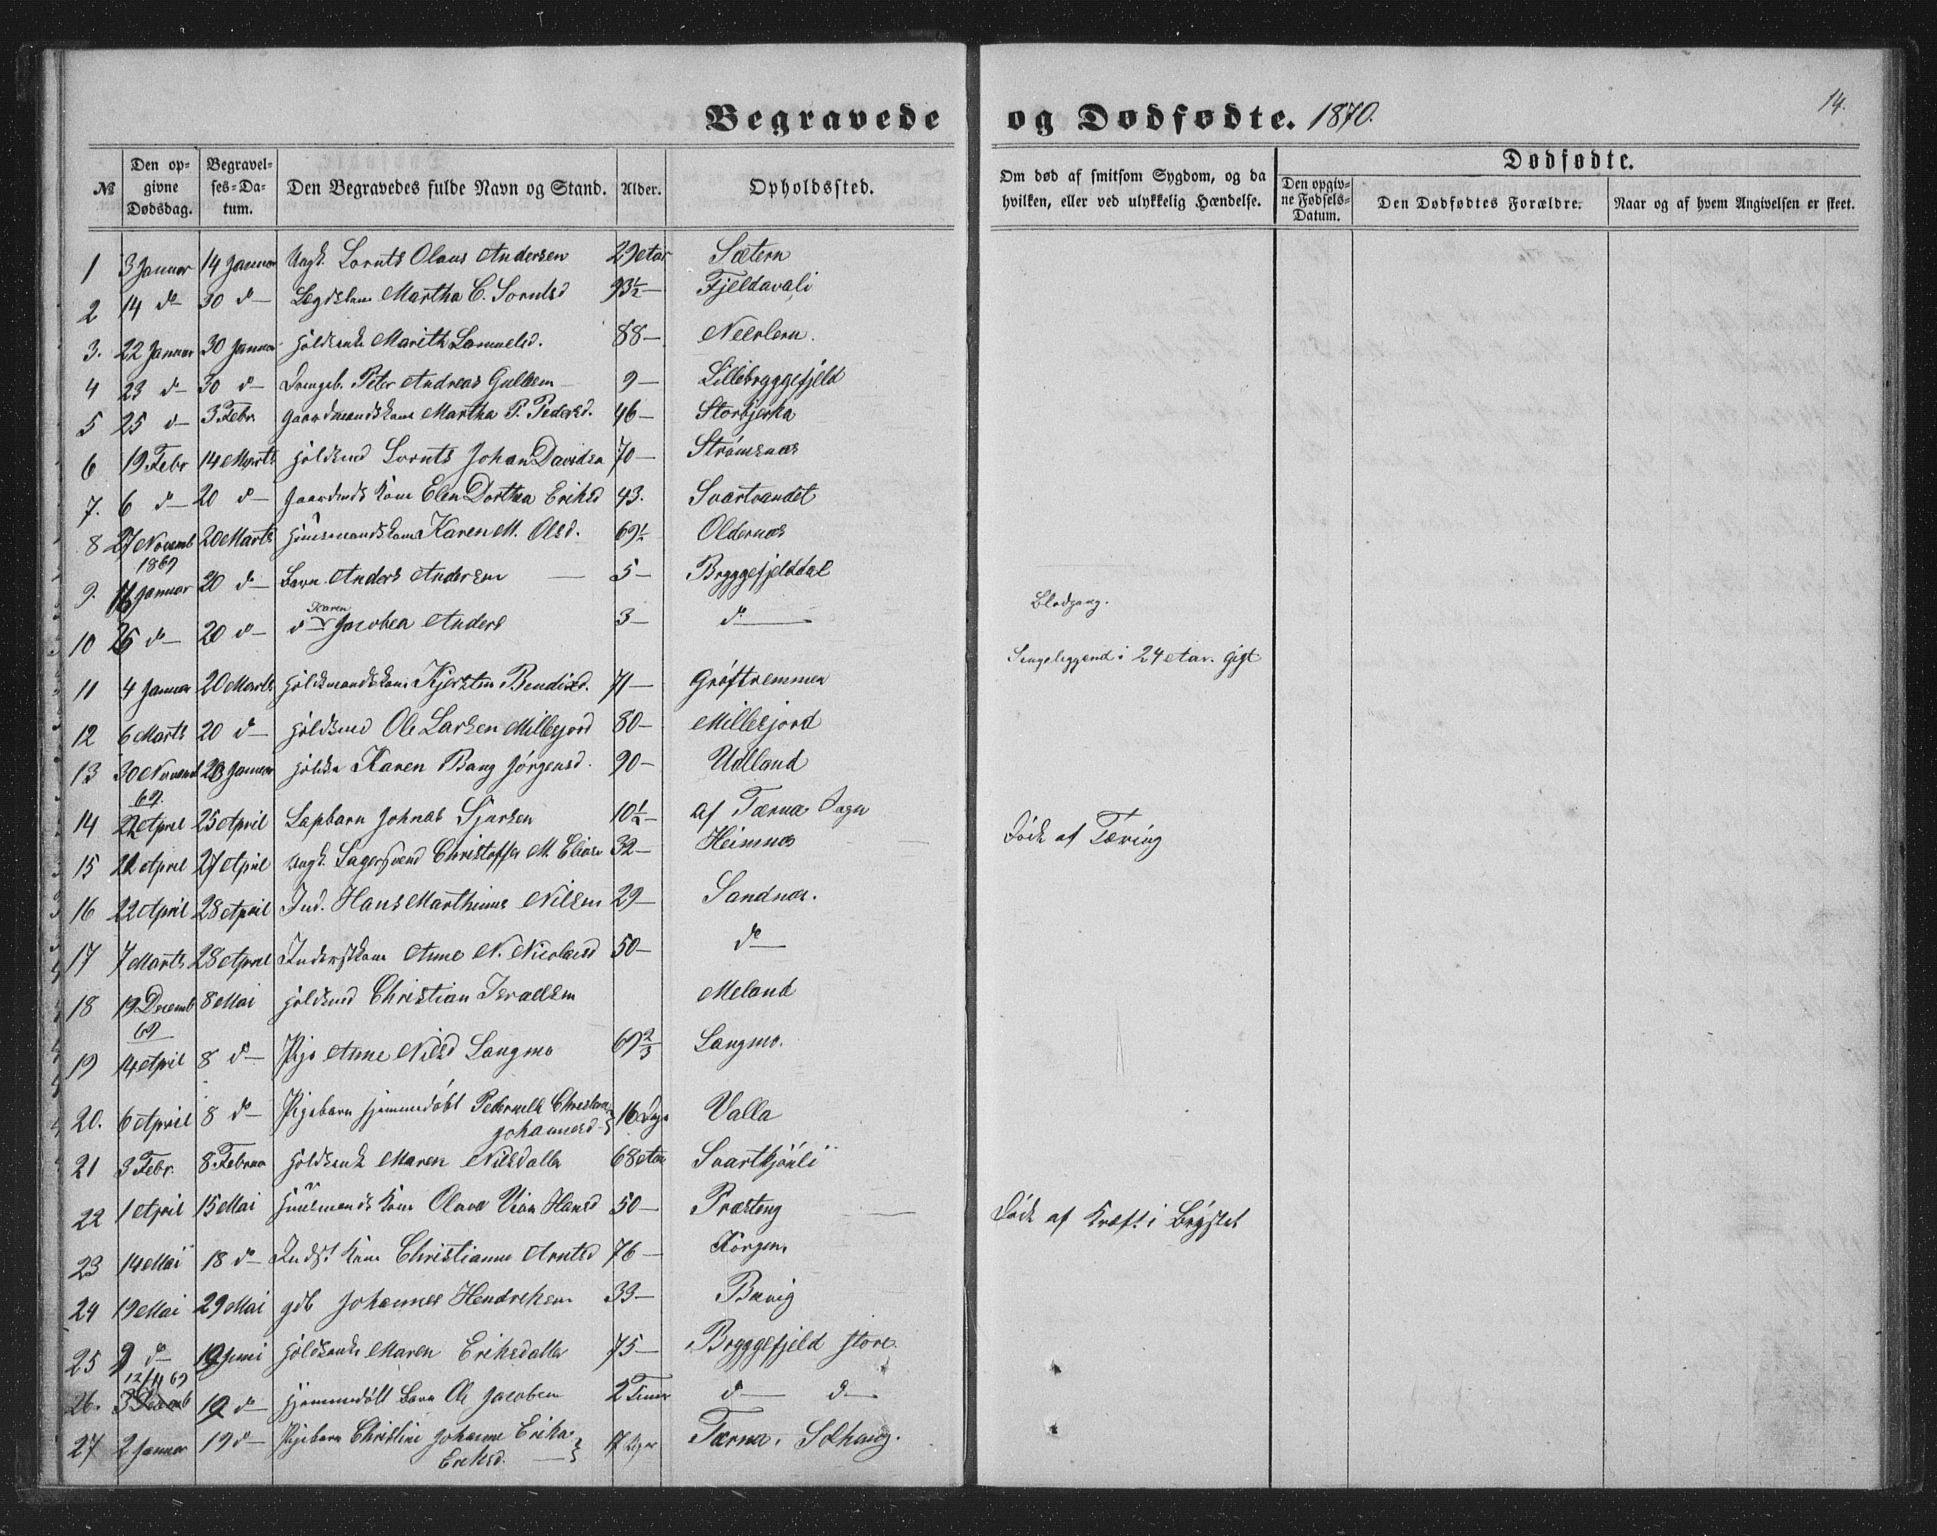 Begravede og Dødfødte. 1870. 14.
№ Den opgivne Dødsdag. Begravelses-Datum. Den Begravedes fulde Navn og Stand. Alder. Opholdssted. Om død af smitsom Sygdom, og da hvilken, eller ved ulykkelig Hændelse.
Dødfødte.
Den opgivne Fødsels-Datum. Den Dødfødtes Forældre. Naar og af hvem Angivelsen er skeet.
1 3 Januar 14 Januar Ungk. Lornts Olaus Andersen 29 Aar Sætern
2 14 do 30 do Martha C. Lorntsd 93½ — Fjeldavali
3. 22 Januar 30 Januar Marith Samuelsd. 88 —
4 23 do 30 do Drengeb. Peter Andreas 9 — Lillebryggefjeld
5 25 do 3 Febr. Gaardmandskone Martha P. Pedersd. 46 — Storbjerka
6 19 Febr 14 Marts Lornts Johan Davidsen 70 — Strømsnæs
7. 6 do 20 do Kone Elen Dorthea Eriksd 43. Svartvandet
8 27 Novemb 1869 20 Marts Huusmandskone Karen M. Olsd. 69½ Oldernæs
9. 16 Januar 20 do Barn Anders Andersen 5 — Bryggefjelddal
10 26 do 20 do do Karen Jacobea Anders 3 — do Blodgang.
11 4 Januar 20 Marts Kjersten Bendixd. 71 — Grøftremmen Sengeliggend i 24 Aar. Gigt
12 6 Marts 20 do Ole Larsen Millesjord 80 — Millesjord
13 30 Novemb 69. 23 Januar Karen Bang Jørgensd. 90 — Udland
14 22 April 25 April Lapbarn Johnas Sjursen 10½ — af Tærna Sogn
15 22 April 27 April Ungk. Christoffer M. 32 — Heimnæs Døde af Tæring
16 22 April 28 April Ind. Hans Marthinus Nilsen 29 — Sandnæs.
17 7 Marts 28 April Inderstkone Anne N. Nicolaisd 50 — do
18 19 Decemb 69 8 Mai Christian Israelsen Meland
19 14 April 8 do Pige Anne Nilsd Langmo 69⅔ Langmo.
20. 6 April 8 do Pigebarn hjemmedøbt Pedernelle
Johannesd 16 Dage Valla
21 3 Febr. 8 Februar Maren Nilsdatter 68 Aar Svarttjønli
22 1 April 15 Mai Huusmands Kone Olava Hansd 50 — Præsteng Døde af Kræft i Brystet
23 14 Mai 18 do Indst Kone Christianne Arntsd 76 — Korgen.
24 19 Mai 29 Mai gdb Johannes Hendriksen 33 — Bavig
25 9 do 19 Juni Maren Eriksdatter 75 — Bryggefjeld store.
26. 12/11 69 19 do hjemmedøbt Barn Ole Jacobsen 2 Timer do do
27 2 Januar 19 do Pigebarn Christine Johanne Erika
Eriksd. 17 Tærna. Solhaug.